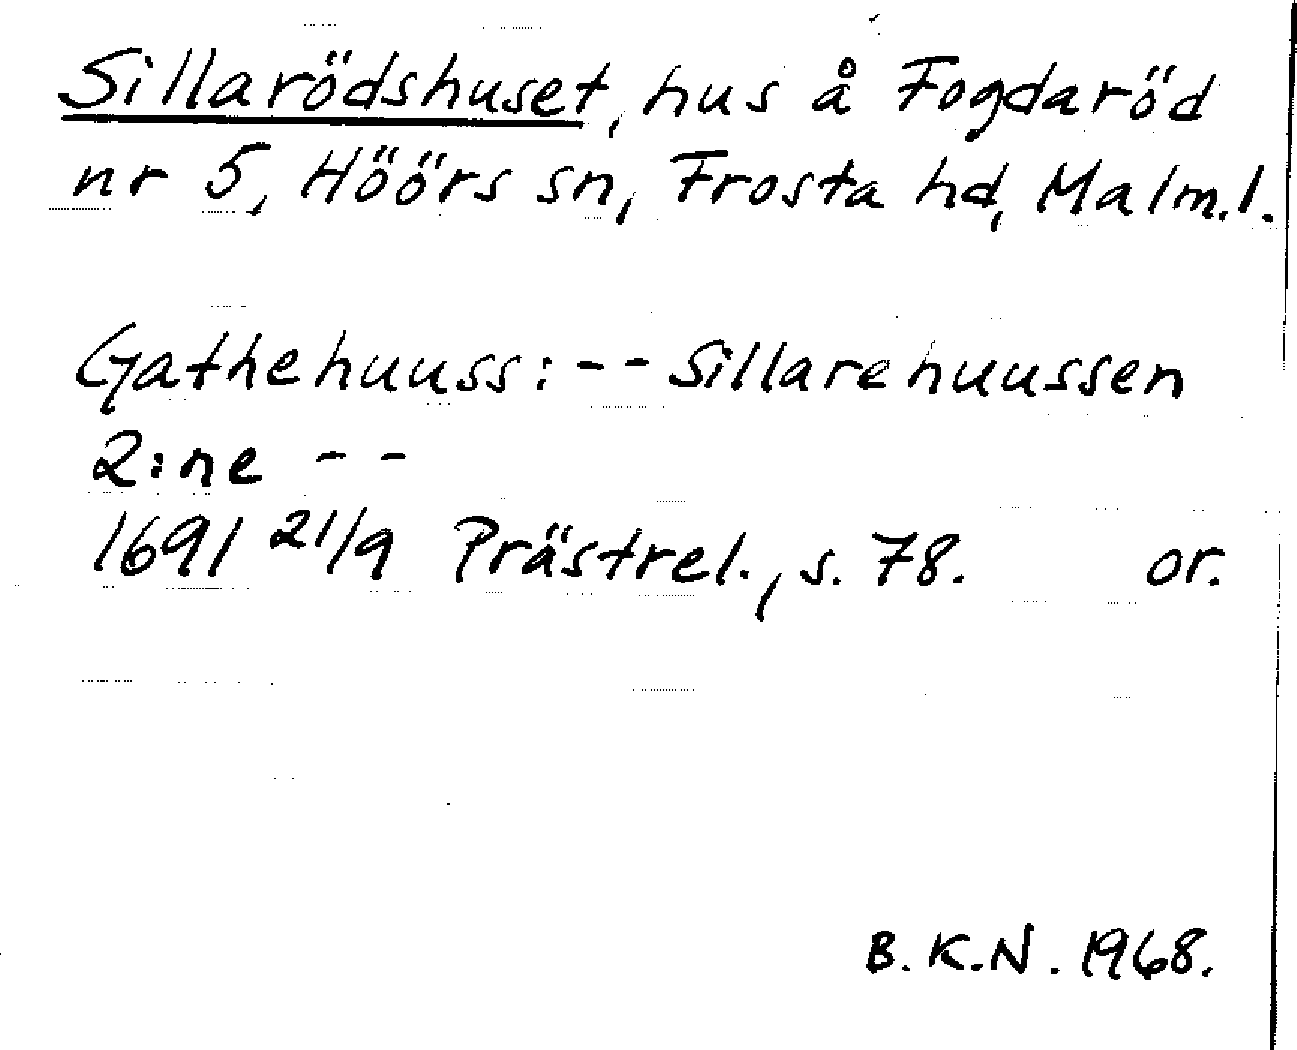 Sillarödshuset, hus å Fogdaröd
nr 5, Höörs sn, Frosta hd, Malm.l.
Gathehuuss: -- Sillarehuussen
2:ne --
1691 21/9 Prästrel., s. 78. or.
B.K.N. 1968.